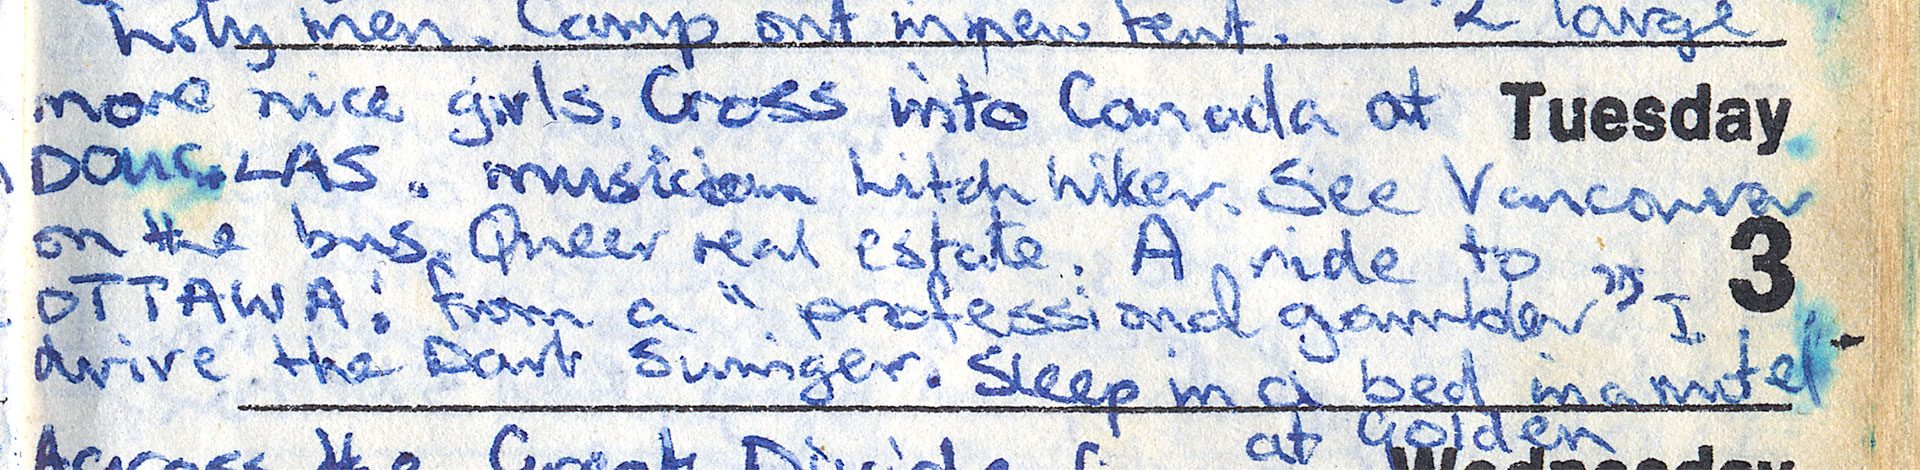 holy men. Camp out in new tent. 2 large
more nice girls. Cross into Canada at Tuesday
DOUGLAS. musician hitch hiker. See Vancouver
on the bus. Queer real estate. A ride to 3
OTTAWA! from a "professional gambler" I
drive the Dart Swinger. Sleep in a bed in a motel
at Golden
Across the Great Divide Wednesday